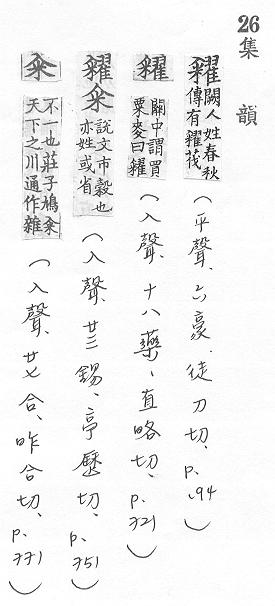 26 集韻
糴 闕人姓春秋傳有糴茷(平聲、六豪.徒刀切、p.194)
糴 關中謂買粟麥曰糴(入聲、十八藥、直略切、p.721)
糴籴 說文市穀也亦姓或省(入聲、廿三錫、亭歷切、p.751)
籴 不一也莊子鳩籴天下之川通作雜(入聲、廿七合、昨合切、p.771)